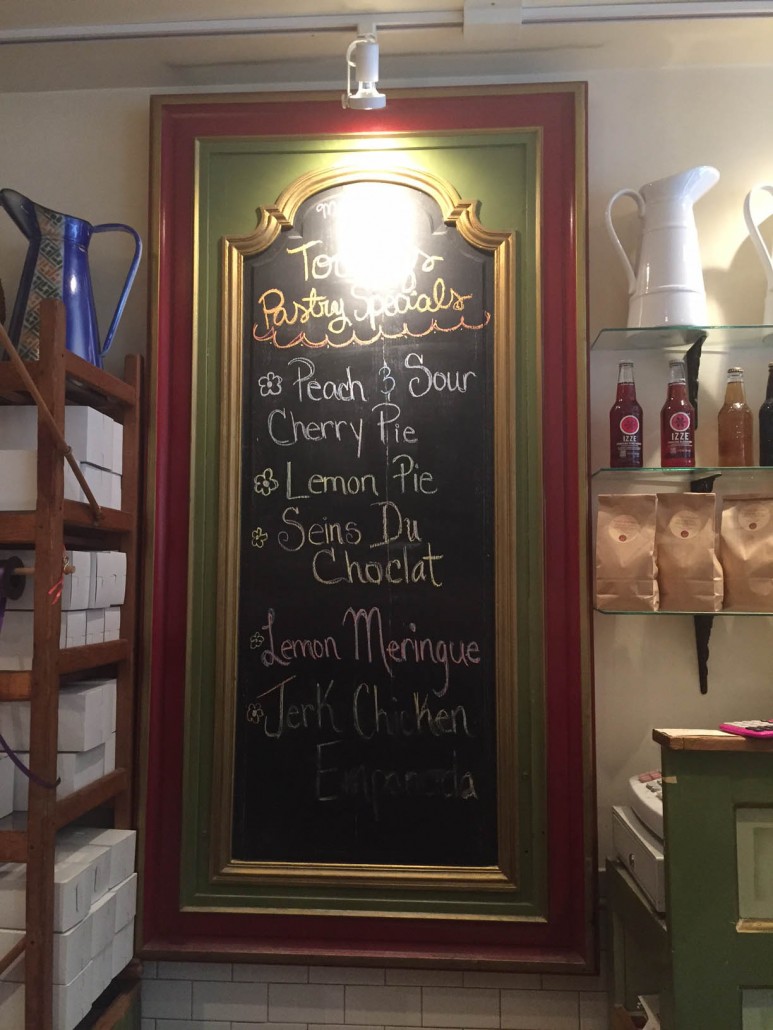 Today's
Pastry Specials
Peach & Sour
Cherry Pie
Lemon Pie
Seins Du
Choclat
Lemon Meringue
Jerk Chicken
Empaneda
IZZE
IZZE